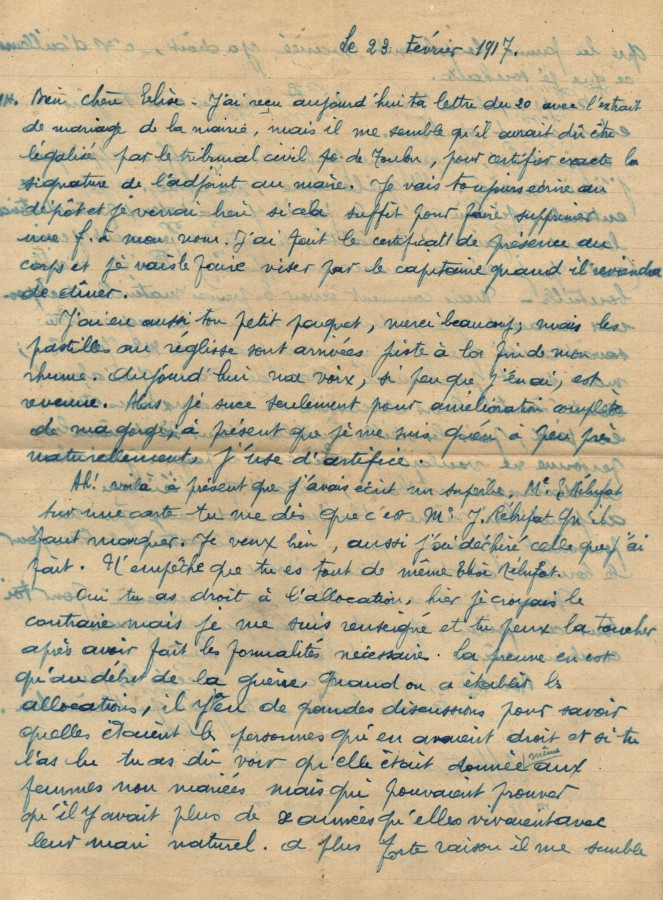 Le 23 Février 1917.
Bien chère Elise - J'ai reçu aujourd'hui ta lettre du 20 avec l'extrait
de mariage de la mairie, mais il me semble qu'il aurait dû être
légalisé par le tribunal civil de Toulon, pour certifier exacte la
signature de l'adjoint au maire. Je vais toujours écrire au
dépôt et je verrai bien si cela suffit pour faire supprimer
une f. à mon nom. J'ai fait le certificat de présence au
corps et je vais le faire viser par le capitaine quand il reviendra
de dîner.
J'ai eu aussi ton petit paquet, merci beaucoup, mais les
pastilles au réglisse sont arrivées juste à la fin de mon
rhume. Aujourd'hui ma voix, si peu que j'en ai, est
revenue. Mais je suce seulement pour amélioration complète
de ma gorge, à présent que je me suis guéri à peu près
naturellement j'use d'artifice.
Ah! voilà à présent que j'avais écrit un superbe, Me E Réhufat
sur une carte tu me dis que c'est Me J. Réhufat qu'il
faut marquer. Je veux bien, aussi j'ai déchiré celle que j'ai
fait. N'empêche que tu es tout de même Elise Réhufat.
Oui tu as droit à l'allocation, hier je croyais le
contraire mais je me suis renseigné et tu peux la toucher
après avoir fait les formalités nécessaire. La preuve en est
qu'au début de la guerre, quand on a établir les
allocations, il y eu de grandes discussions pour savoir
quelles étaient les personnes qui en avaient droit et si tu
l'as lu tu as dû voir qu'elle était donnée même aux
femmes non mariées mais qui pouvaient prouver
qu'il y avait plus de 2 années qu'elles vivaient avec
leur mari naturel. A plus forte raison il me semble